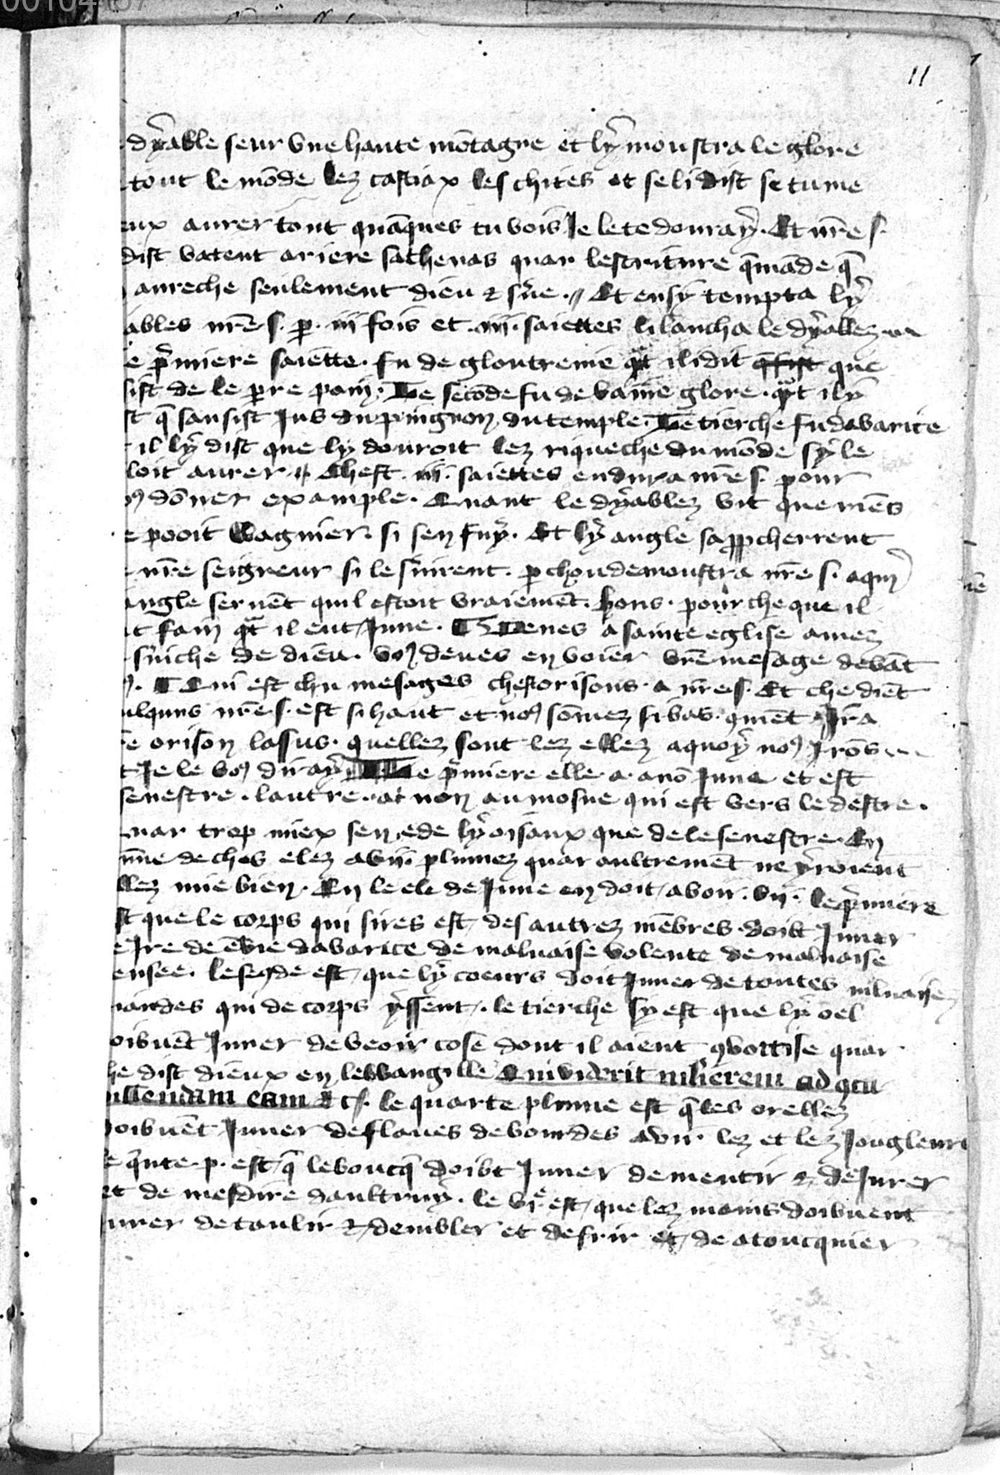 11
dyable seur une haute mōtagne et ly moustra le glore
tout le mōde lez castiax les chites et se li dist se tu me
eux aurer tout quāques tu vois Je le te douray. Et nr̄e s.
dist vatent ariere sathenas quar lescriture q̄māde q̄
aureche seulement dieu & s̄ue. Et ensy tempta ly
ables nr̄e s. p. iij fois et .iij. saiettes li lancha le dyallez
e p̄miere saiette. fu de gloutrenie qt̄ il dit que
sist de le pierre pain. Le secōde fu de vaine glore. qt̄ il ly
st q̄ sausist Jus du pingnon du temple. Le tierche fu davarice
il ly dist que ly douroit lez riqueche du mōde sy le
loit aurer. Chest .iij. saiettes endura nr̄e s. pour
dōner example. Quant le dyablez vit que riens
e pooit wagnier. si sen fuy. Et ly angle sapp̄cherrent
nr̄e seigneur si le s̄uirent. p chou demoustra nr̄e s. a qui
angle seruēt quil estoit vraiemēt. hons. pour che que il
t fain qt̄ il eut June. Venes a sainte eglise amez
s̄uiche de dieu. vo9 deues envoier vr̄e mesage devāt
Qui est chu mesages chest orisons. a nr̄e s. Et che diēt
ulquns nr̄e s. est si haut et no9 sōmez si bas. q̄ment Jra
e orison lassus. quellez sont lez ellez a quoy no9 Jrōs
t Je le vo9 diray Le p̄miere elle a anō June et est
senestre. lautre. a non aumosne qui est vers le destre.
uar trop miex sen ede ly oisaux que de le senestre. En
une de ches elez a viij plumez quar aultremēt ne yroient
llez mie bien. En le ele de June en doit avoir. vij. le p̄miere
st que le corps qui sires est des autrez mēbres doibt Juner
e Jre de ēvie davarice de malvaise volente de malvaise
ensee. le segōde est que ly coeurs doit Juner de toutes malvaisez
andes qui de corps yssent. le tierche sy est que ly oel
oibuēt Juner de veoir cose dont il aient 9voitise quar
he dist dieux en lewangille Qui viderit mulierem ad 9cu
piscendam eam & c̄. le quarte plume est q̄ les orellez
doibuēt Juner de flaues de bourdes avir lez et lez Jougleurs
e q̄nte .p. est q̄ le boucq̄ doibt Juner de mentir & de Jurer
et de mesdire daultruy. le vi^e est que lez mains doibuent
uner de taulir & dembler et de frir et de atoucquier